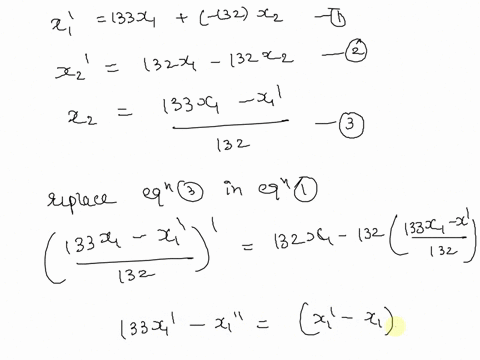 x₁' = 133x₁ + (-132) x₂ —①
x₂' = 132x₁ - 132x₂ —②
x₂ = (133x₁ - x₁')/132 —③
replace eqⁿ ③ in eqⁿ ①
((133x₁ - x₁')/132)' = 132x₁ - 132 ((133x₁ - x')/132)
133x₁' - x₁'' = (x₁' - x₁)